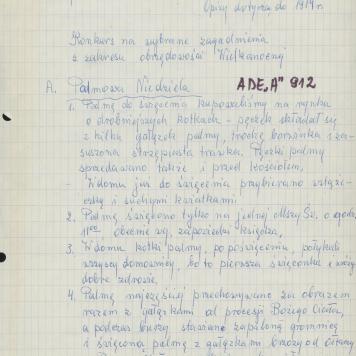 Opisy dotyczą do 1914 r.
Konkurs na wybrane zagadnienia
z zakresu obrzędowości Wielkanocnej
A. Palmowa Niedziela ADE „A" 912
1. Palmę do święcenia kupowaliśmy na rynku
o drobniejszych kotkach - pęczek składał się
z kilku gałązek palmy, trochę borówinka i za-
suszona strzępiasta trawka. Pęczki palmy
sprzedawano także i przed kościołem,
- W domu już do święcenia przybierano wstąże-
czką i suchymi kwiatkami.
2. Palmę święcono tylko na jednej Mszy Św. o godz.
11⁰⁰ obecnie wg. zapowiedzi księdza,
3. W domu kotki palmy, po poświęceniu, połykali
wszyscy domownicy, bo to pierwsza święconka i wróży
dobre zdrowie,
4. Palmę najczęściej przechowywano za obrazem
razem z gałązkami od procesji Bożego Ciała,
a podczas burzy, stawiano zapaloną gromnicę
i święconą palmę z gałązkami brzozy od ołtarzy